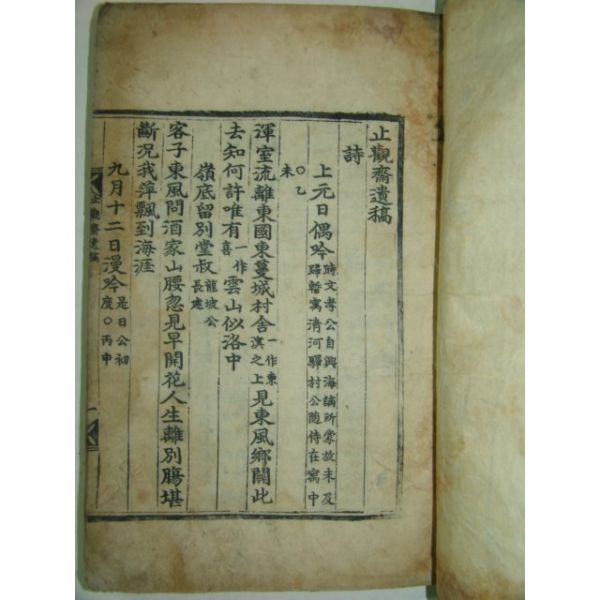 止觀齋遺稿
詩
上元日偶吟 時文孝公自興海謫所蒙放未及歸暫寓清河驛村公隨侍在寓中
○乙未
渾室流離東國東蔓城村舍 一作東溟之上 見東風鄉關此
去知何許唯有 一作喜 雲山似洛中
嶺底留別堂叔 龍坡公長建
客子東風問酒家山腰忽見早開花人生離別腸堪
斷況我萍飄到海涯
九月十二日漫吟 是日公初度○丙申
止觀齋遺稿
一